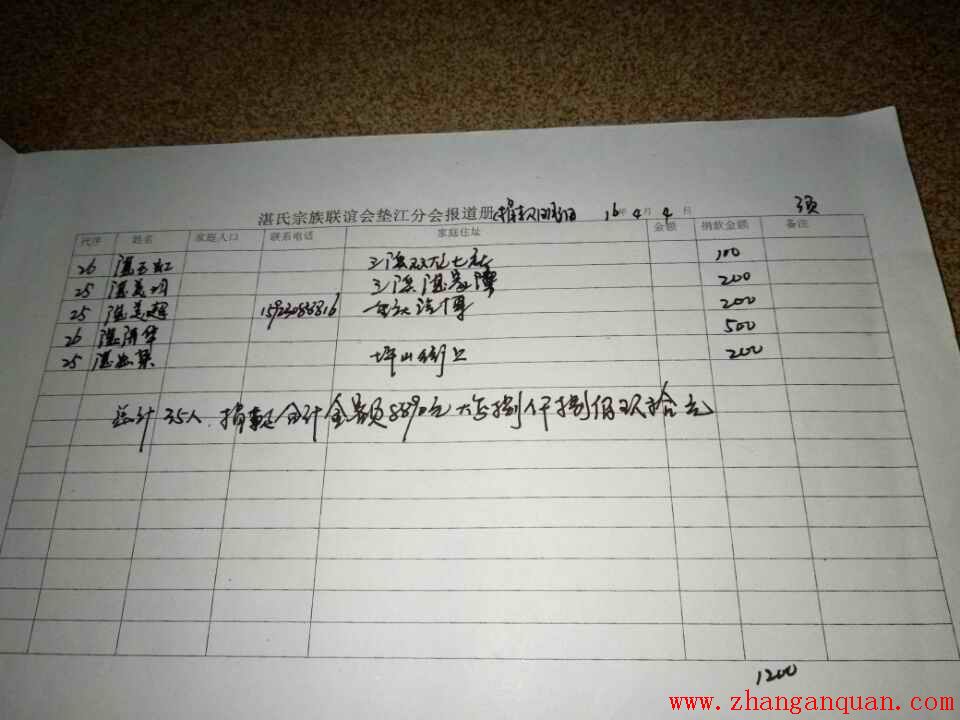 湛氏宗族联谊会垫江分会报道册 捐款明细 16年4月4日 3页
代序 姓名 家庭人口 联系电话 家庭住址 金额 捐款金额 备注
26 湛 100
25 湛美明 三溪湛家 200
25 湛美超 200
26 湛清华 500
25 湛 坪山街上 200
总计35人 捐款合计金额8890元 大写捌仟捌佰玖拾元
1200
www.zhanganquan.com